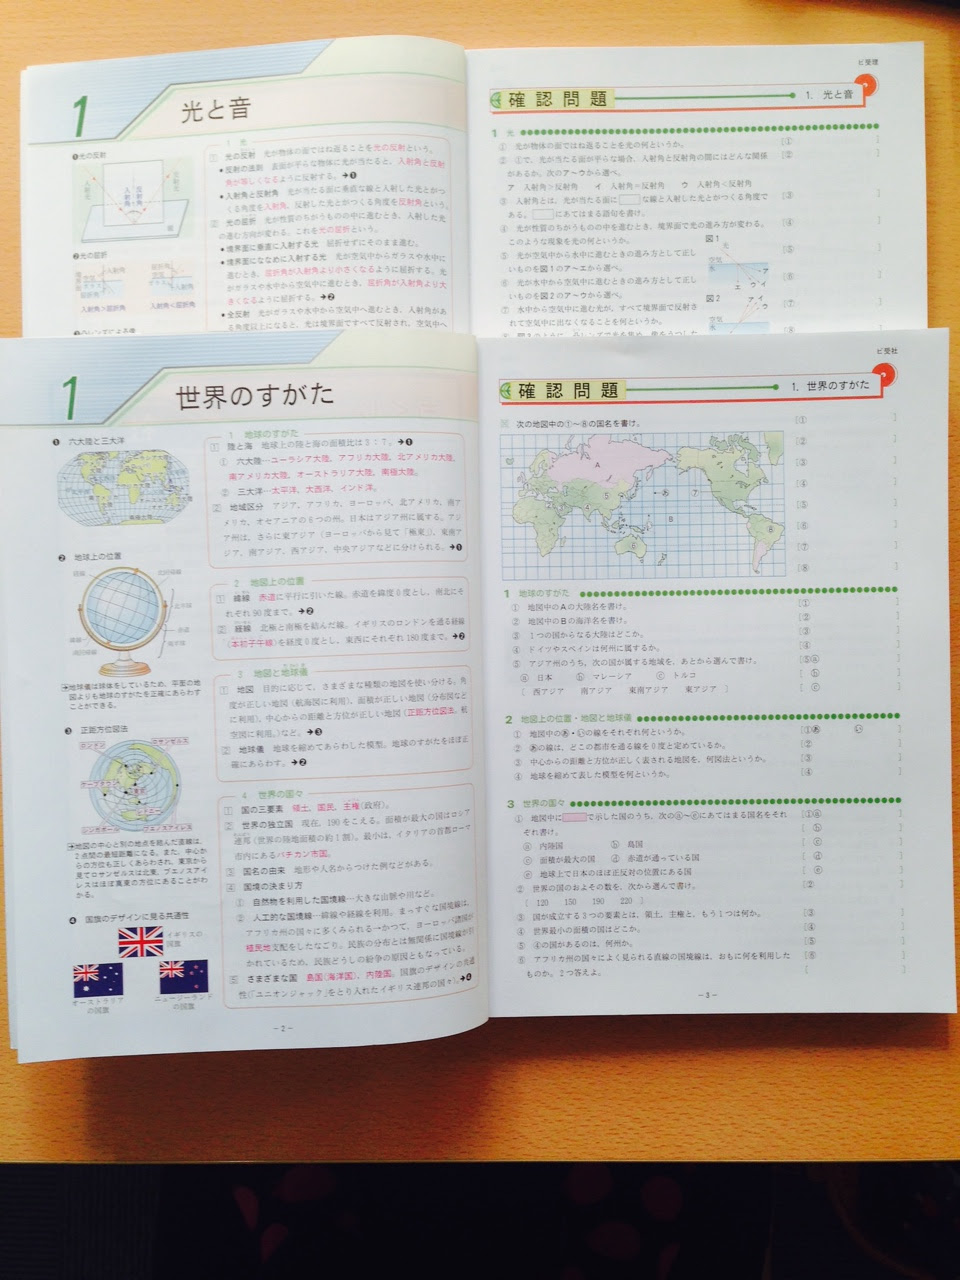 1 光と音
❶光の反射
入射光
入射角
反射角
反射光
❷光の屈折
空気
水
入射角
屈折角
入射角>屈折角
入射角<屈折角
1 光
1 光の反射 光が物体の面ではね返ることを光の反射という。
●反射の法則 表面が平らな物体に光が当たると、入射角と反射
角が等しくなるように反射する。➜❶
●入射角と反射角 光が当たる面に垂直な線と入射した光とがつ
くる角度を入射角、反射した光とがつくる角度を反射角という。
2 光の屈折 光が性質のちがうものの中に進むとき、入射した光
の進む方向が変わる。これを光の屈折という。
●境界面に垂直に入射する光 屈折せずにそのまま進む。
●境界面にななめに入射する光 光が空気中からガラスや水中に
進むとき、屈折角が入射角より小さくなるように屈折する。光
がガラスや水中から空気中に進むとき、屈折角が入射角より大
きくなるように屈折する。➜❷
●全反射 光がガラスや水中から空気中へ進むとき、入射角があ
る角度以上になると、光は境界面ですべて反射され、空気中へ
ピ受理
確認問題
1. 光と音
1 光
① 光が物体の面ではね返ることを光の何というか。 [①
② ①で、光が当たる面が平らな場合、入射角と反射角の間にはどんな関係 [②
があるか。次のア〜ウから選べ。
ア 入射角>反射角 イ 入射角=反射角 ウ 入射角<反射角
③ 入射角とは、光が当たる面に□な線と入射した光とがつくる角度で [③
ある。□にあてはまる語句を書け。
④ 光が性質のちがうものの中を進むとき、境界面で光の進み方が変わる。 [④
このような現象を光の何というか。
⑤ 光が空気中から水中に進むときの進み方として正し [⑤
いものを図1のア〜エから選べ。
⑥ 光が水中から空気中に進むときの進み方として正し [⑥
いものを図2のア〜ウから選べ。
⑦ 水中から空気中に進む光が、すべて境界面で反射さ [⑦
れて空気中に出なくなることを何というか。
図1
光
空気
水
ア
イ
ウ
エ
図2
ア
イ
ウ
空気
水
1 世界のすがた
❶ 六大陸と三大洋
❷ 地球上の位置
経線
北回帰線
北半球
赤道
南半球
緯線
南回帰線
➜地球儀は球体をしているため、平面の地
図よりも地球のすがたを正確にあらわす
ことができる。
❸ 正距方位図法
ロンドン
ロサンゼルス
ケープタウン
東京
シドニー
シンガポール
ブエノスアイレス
➜地図の中心と別の地点を結んだ直線は、
2点間の最短距離になる。また、中心か
らの方位も正しくあらわされ、東京から
見てロサンゼルスは北東、ブエノスアイ
レスはほぼ真東の方位にあることがわ
かる。
❹ 国旗のデザインに見る共通性
イギリスの
国旗
オーストラリア
の国旗
ニュージーランド
の国旗
1 地球のすがた
1 陸と海 地球上の陸と海の面積比は3:7。➜❶
① 六大陸…ユーラシア大陸、アフリカ大陸、北アメリカ大陸、
南アメリカ大陸、オーストラリア大陸、南極大陸。
② 三大洋…太平洋、大西洋、インド洋。
2 地域区分 アジア、アフリカ、ヨーロッパ、北アメリカ、南ア
メリカ、オセアニアの6つの州。日本はアジア州に属する。アジ
ア州は、さらに東アジア（ヨーロッパから見て「極東」）、東南ア
ジア、南アジア、西アジア、中央アジアなどに分けられる。➜❶
2 地図上の位置
1 緯線 赤道に平行に引いた線。赤道を緯度0度とし、南北にそ
れぞれ90度まで。➜❷
2 経線 北極と南極を結んだ線。イギリスのロンドンを通る経線
（本初子午線）を経度0度とし、東西にそれぞれ180度まで。➜❷
3 地図と地球儀
1 地図 目的に応じて、さまざまな種類の地図を使い分ける。角
度が正しい地図（航海図に利用）、面積が正しい地図（分布図など
に利用）、中心からの距離と方位が正しい地図（正距方位図法、航
空図に利用。）など。➜❸
2 地球儀 地球を縮めてあらわした模型。地球のすがたをほぼ正
確にあらわす。➜❷
4 世界の国々
1 国の三要素 領土、国民、主権（政府）。
2 世界の独立国 現在、190をこえる。面積が最大の国はロシア
連邦（世界の陸地面積の約1割）。最小は、イタリアの首都ローマ
市内にあるバチカン市国。
3 国名の由来 地形や人名からつけた例などがある。
4 国境の決まり方
① 自然物を利用した国境線…大きな山脈や川など。
② 人工的な国境線…緯線や経線を利用。まっすぐな国境線は、
アフリカ州の国々に多くみられる→かつて、ヨーロッパ諸国が
植民地支配をしたなごり。民族の分布とは無関係に国境線が引
かれているため、民族どうしの紛争の原因ともなっている。
5 さまざまな国 島国（海洋国）、内陸国。国旗のデザインの共通
性（「ユニオンジャック」をとり入れたイギリス連邦の国々）。➜❹
−2−
ピ受社
確認問題
1. 世界のすがた
次の地図中の①〜⑧の国名を書け。 [①
[②
[③
[④
[⑤
[⑥
[⑦
[⑧
A
B
あ
1 地球のすがた
① 地図中のAの大陸名を書け。 [①
② 地図中のBの海洋名を書け。 [②
③ 1つの国からなる大陸はどこか。 [③
④ ドイツやスペインは何州に属するか。 [④
⑤ アジア州のうち、次の国が属する地域を、あとから選んで書け。 [⑤ⓐ
ⓐ 日本 ⓑ マレーシア ⓒ トルコ [ⓑ
[ 西アジア 南アジア 東南アジア 東アジア ] [ⓒ
2 地図上の位置・地図と地球儀
① 地図中のあ・いの線をそれぞれ何というか。 [①あ い ]
② あの線は、どこの都市を通る線を0度と定めているか。 [②
③ 中心からの距離と方位が正しく表される地図を、何図法というか。 [③
④ 地球を縮めて表した模型を何というか。 [④
3 世界の国々
① 地図中に□で示した国のうち、次のⓐ〜ⓔにあてはまる国名をそれ [①ⓐ
ぞれ書け。 [ⓑ
ⓐ 内陸国 ⓑ 島国 [ⓒ
ⓒ 面積が最大の国 ⓓ 赤道が通っている国 [ⓓ
ⓔ 地球上で日本のほぼ正反対の位置にある国 [ⓔ
② 世界の国のおよその数を、次から選んで書け。 [②
[ 120 150 190 220 ]
③ 国が成立する3つの要素とは、領土、主権と、もう1つは何か。 [③
④ 世界最小の面積の国はどこか。 [④
⑤ ④の国があるのは、何州か。 [⑤
⑥ アフリカ州の国々によく見られる直線の国境線は、おもに何を利用した [⑥
ものか。2つ答えよ。
−3−